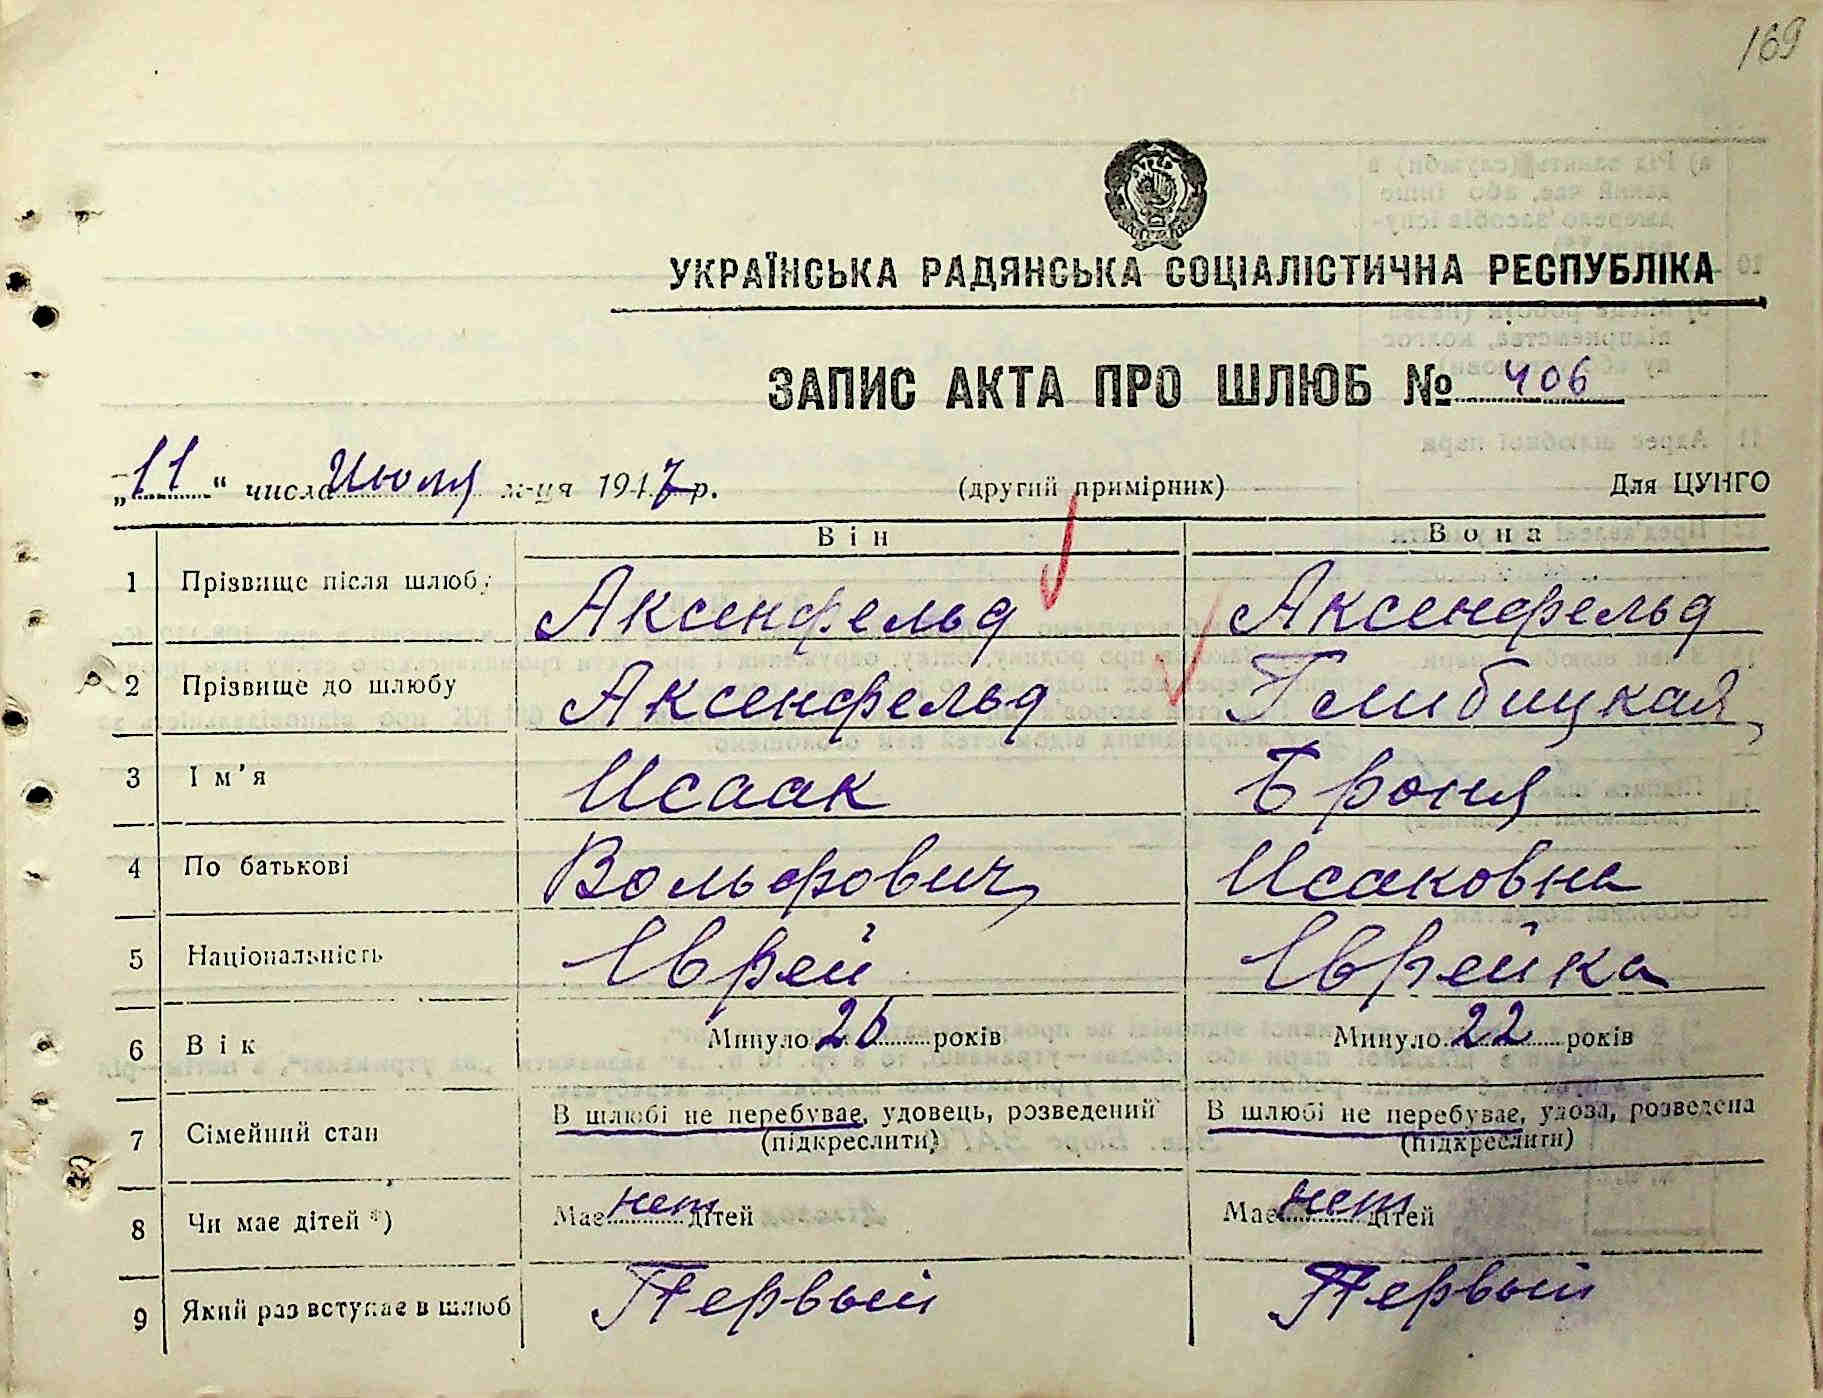 169
УКРАЇНСЬКА РАДЯНСЬКА СОЦІАЛІСТИЧНА РЕСПУБЛІКА
ЗАПИС АКТА ПРО ШЛЮБ № 406
„11“ числа Июля м-ця 1947 р. (другий примірник) Для ЦУНГО
Він Вона
1 Прізвище після шлюбу Аксенфельд Аксенфельд
2 Прізвище до шлюбу Аксенфельд
3 Ім'я Исаак Броня
4 По батькові Вольфович Исаковна
5 Національність Еврей Еврейка
6 Вік Минуло 26 років Минуло 22 років
7 Сімейний стан В шлюбі не перебуває, удовець, розведений В шлюбі не перебуває, удова, розведена
(підкреслити) (підкреслити)
8 Чи має дітей *) Має нет дітей Має нет дітей
9 Який раз вступає в шлюб Первый Первый